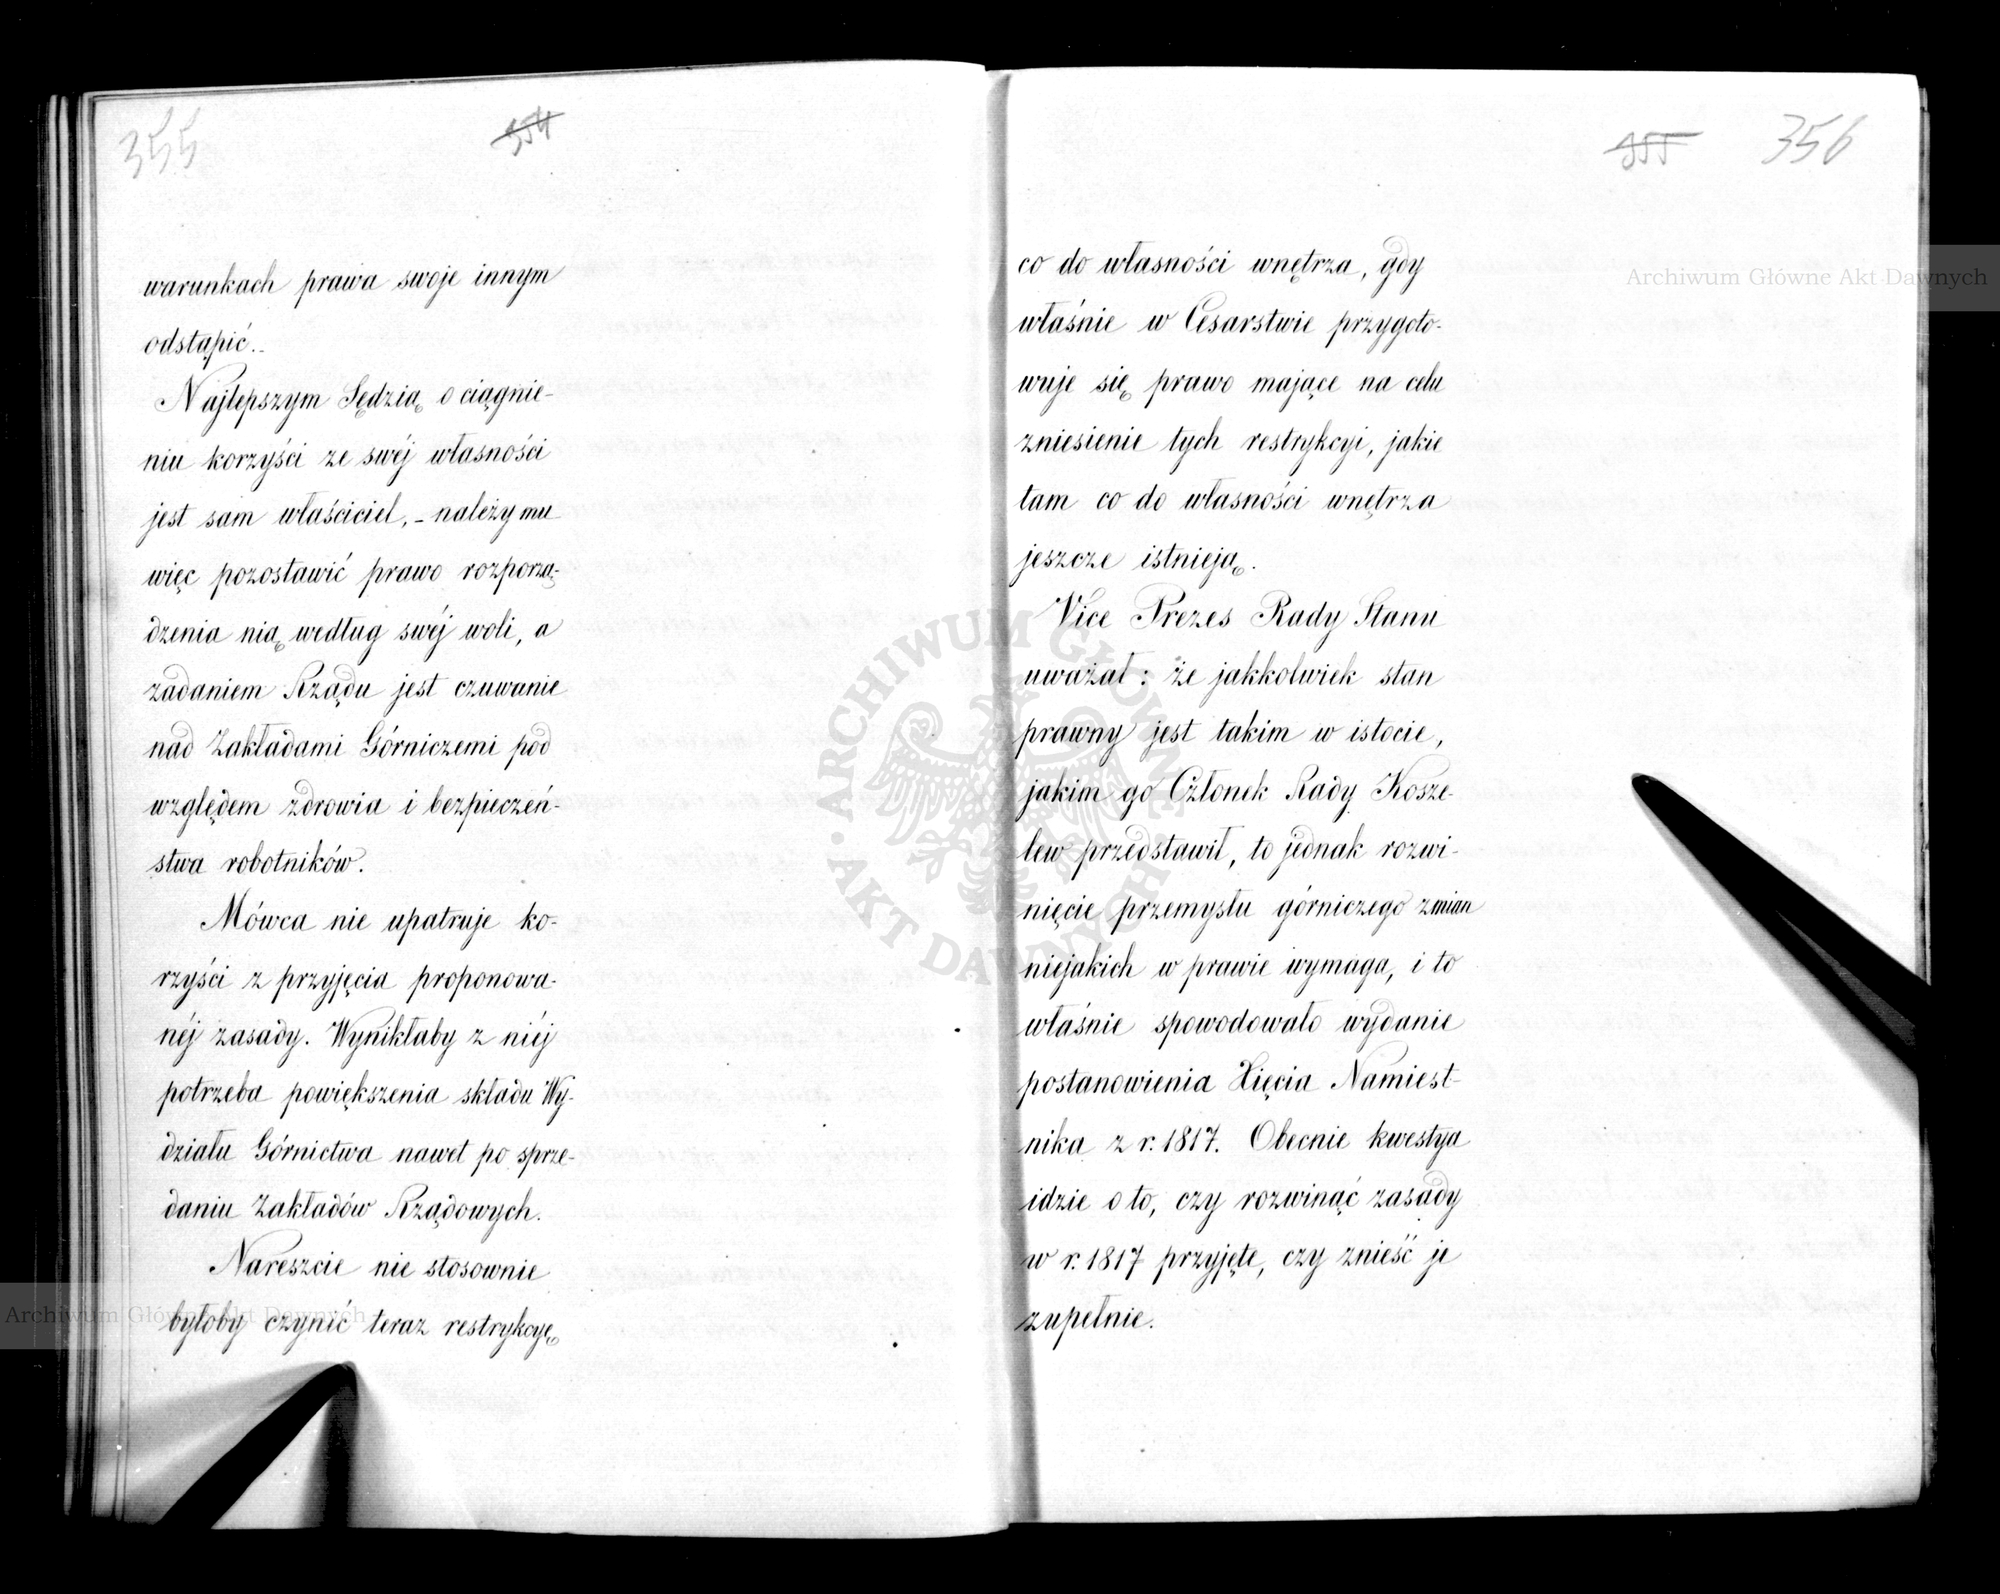 355
354
warunkach prawa swoje innym
odstąpić.
Najlepszym Sędzią o ciągnie-
niu korzyści ze swéj własności
jest sam właściciel, – należy mu
więc pozostawić prawo rozporzą-
dzenia nią według swéj woli, a
zadaniem Rządu jest czuwanie
nad Zakładami Górniczemi pod
względem zdrowia i bezpieczeń-
stwa robotników.
Mówca nie upatruje ko-
rzyści z przyjęcia proponowa-
néj zasady. Wynikłaby z niéj
potrzeba powiększenia składu Wy-
działu Górnictwa nawet po sprze-
daniu Zakładów Rządowych.
Nareszcie nie stosownie
byłoby czynić teraz restrykcyę
355
356
co do własności wnętrza, gdy
właśnie w Cesarstwie przygoto-
wuje się prawo mające na celu
zniesienie tych restrykcyi, jakie
tam co do własności wnętrza
jeszcze istnieją.
Vice Prezes Rady Stanu
uważał: że jakkolwiek stan
prawny jest takim w istocie,
jakim go Członek Rady Kosze-
lew przedstawił, to jednak rozwi-
nięcie przemysłu górniczego zmian
niejakich w prawie wymaga, i to
właśnie spowodowało wydanie
postanowienia Xięcia Namiest-
nika z r. 1817. Obecnie kwestya
idzie o to, czy rozwinąć zasady
w r. 1817 przyjęte, czy znieść je
zupełnie.
Archiwum Główne Akt Dawnych
Archiwum Główne Akt Dawnych
ARCHIWUM GŁÓWNE AKT DAWNYCH